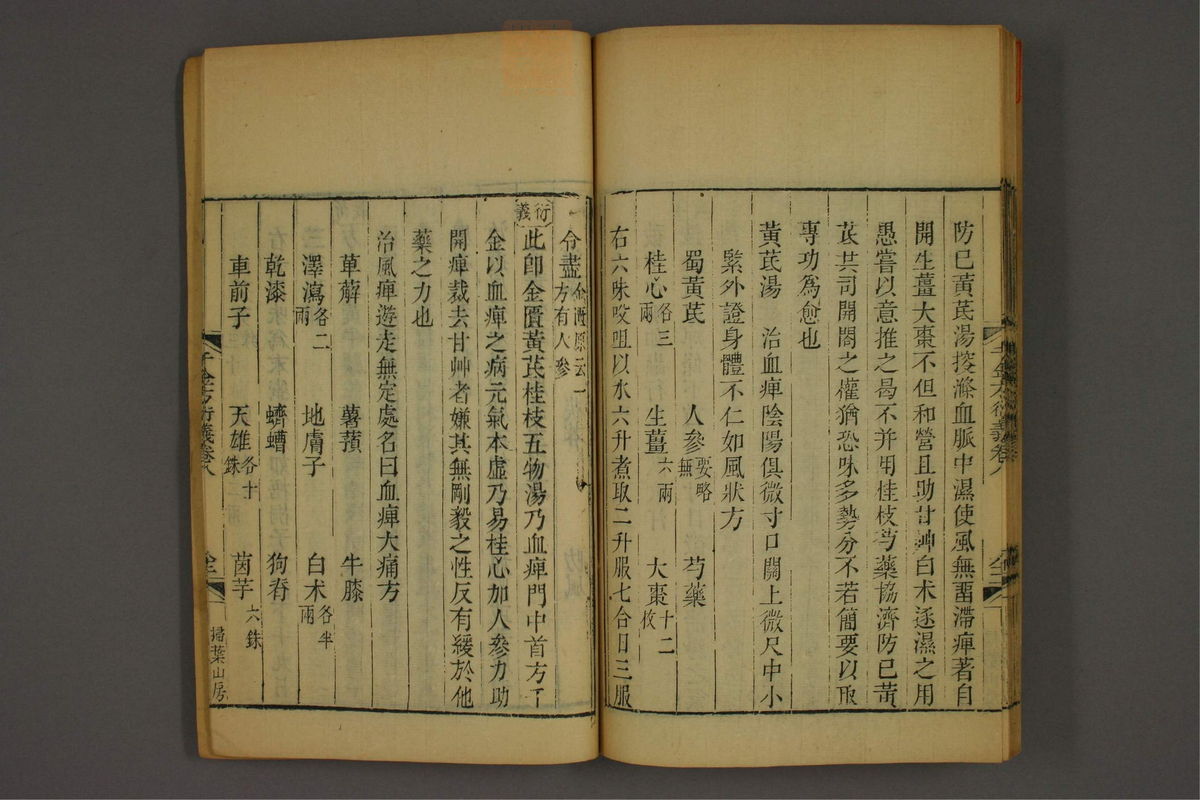 防巳黃芪湯按滌血脈中濕使風無畱滯痺著自
開生薑大棗不但和營且助甘艸白术逐濕之用
愚嘗以意推之曷不并用桂枝芍藥協濟防巳黃
芪共司開闔之權猶恐味多勢分不若簡要以取
專功為愈也
黃芪湯　治血痺陰陽俱微寸口關上微尺中小
緊外證身體不仁如風狀方
蜀黃芪　人參要略無　芍藥
桂心各三兩　生薑六兩　大棗十二枚
右六味㕮咀以水六升煮取二升服七合日三服
令盡金匱原云一方有人參
衍義
此卽金匱黃芪桂枝五物湯乃血痺門中首方千
金以血痺之病元氣本虛乃易桂心加人參力助
開痺裁去甘艸者嫌其無剛毅之性反有緩於他
藥之力也
治風痺遊走無定處名曰血痺大痛方
萆薢　薯蕷　牛膝
澤瀉各二兩　地膚子　白术各半兩
乾漆　蠐螬　狗脊
車前子　天雄各十銖　茵芋六銖
千金方衍義卷八
掃葉山房